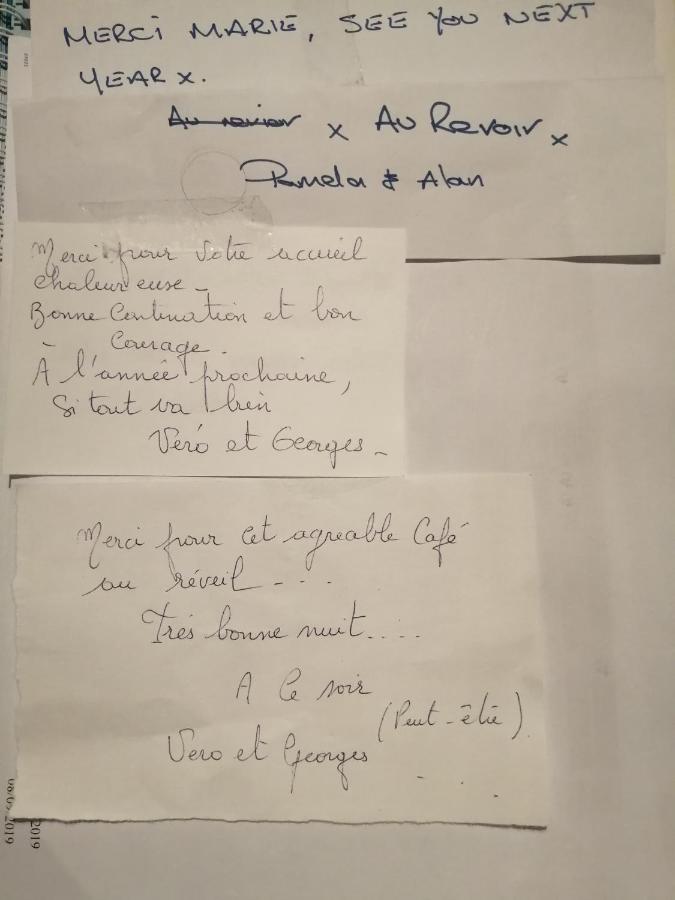 MERCI MARIE, SEE YOU NEXT
YEAR x.
Au revoir x Au Revoir x
Pamela & Alan
Merci pour votre accueil
chaleureuse -
Bonne Continuation et bon
Courage.
A l'année prochaine,
Si tout va bien
Véro et Georges -
Merci pour cet agreable Café
au réveil - . . .
Trés bonne nuit.....
A Ce soir
(Peut-être)
Vero et Georges
2019
2019